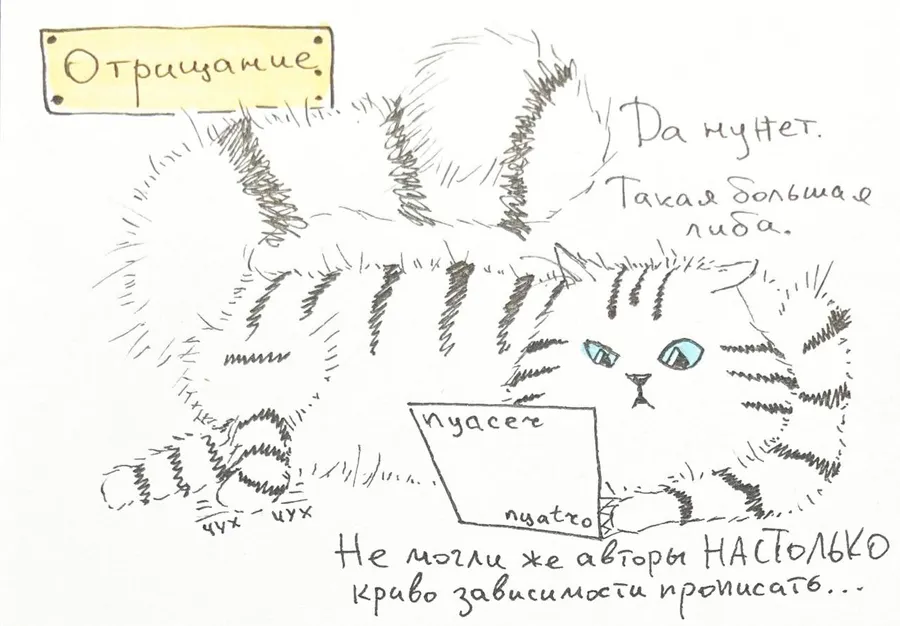 Отрищание
Да ну нет.
Такая большая
либа.
nyacer
nyatro
чух чух
Не могли же авторы НАСТОЛЬКО
криво зависимости прописать...